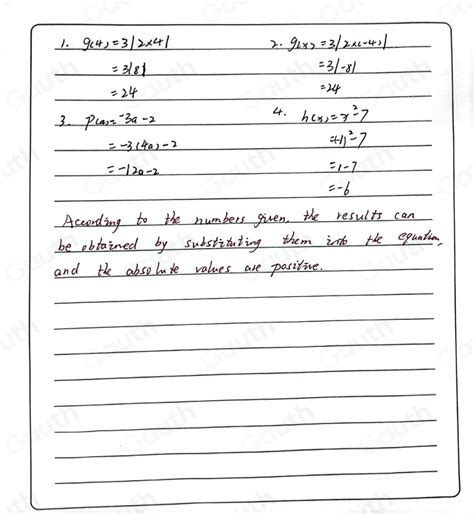 1. g(4) = 3|2×4|
= 3|8|
= 24
2. g(x) = 3|2×(-4)|
= 3|-8|
= 24
3. P(a) = -3a-2
= -3(4a)-2
= -12a-2
4. h(x) = x²-7
=(1)²-7
= 1-7
= -6
According to the numbers given, the results can
be obtained by substituting them into the equation,
and the absolute values are positive.